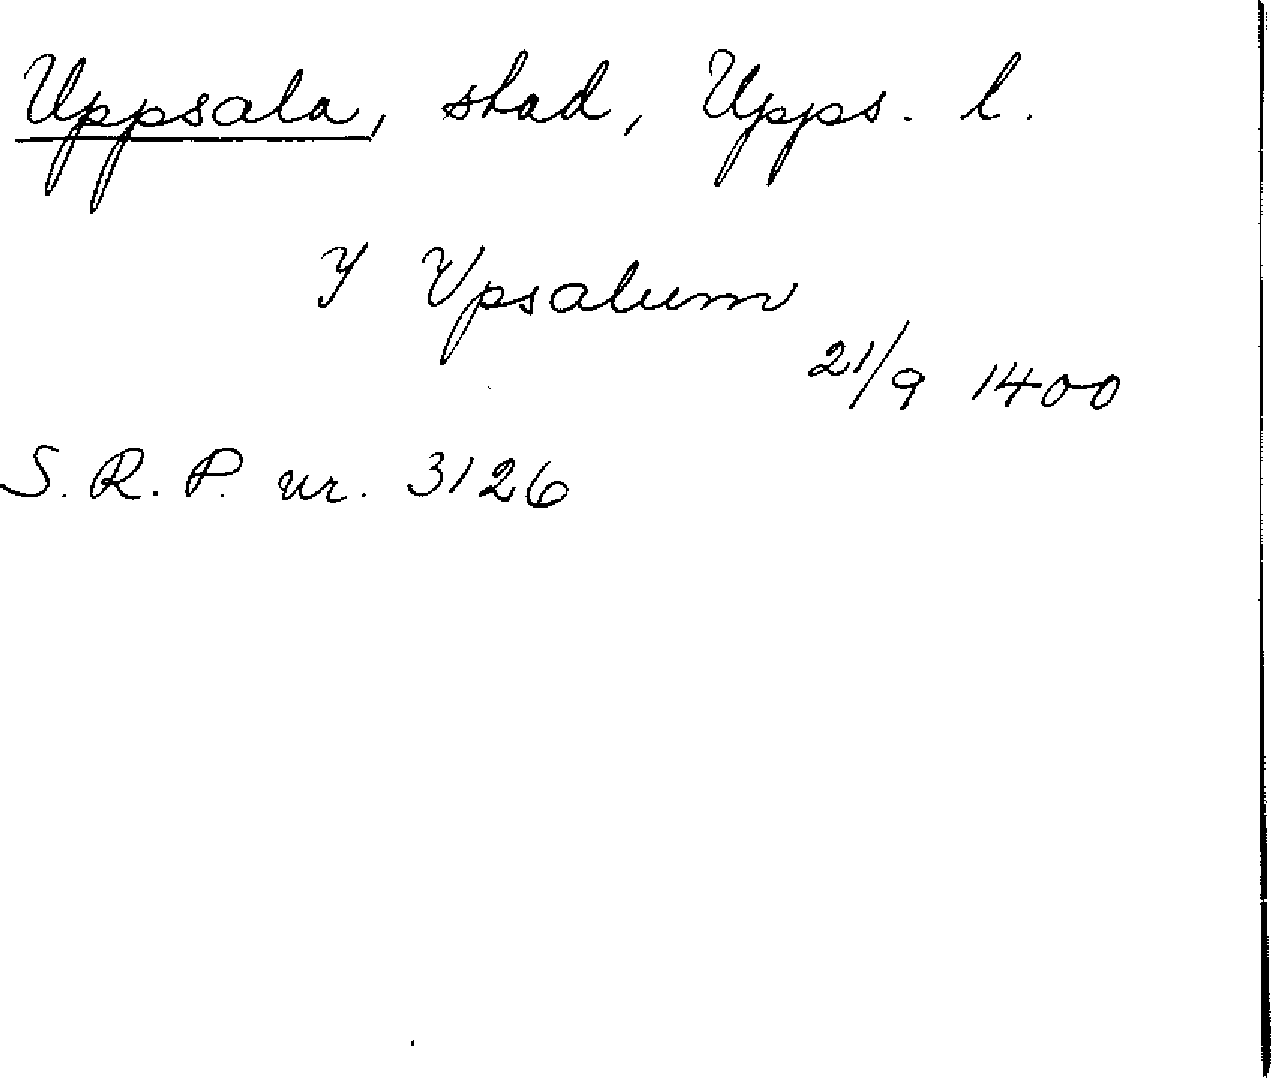 Uppsala, stad, Upps. l.
Y Vpsalum
21/9 1400
S. R. P. nr. 3126